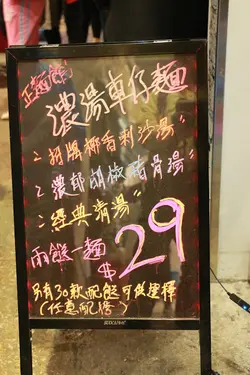 正麵館
濃湯車仔麵
"招牌椰香喇沙湯"
"濃郁胡椒豬骨湯"
"經典清湯"
兩餸一麵 $29
另有30款配餸可供選擇
(任意配搭)